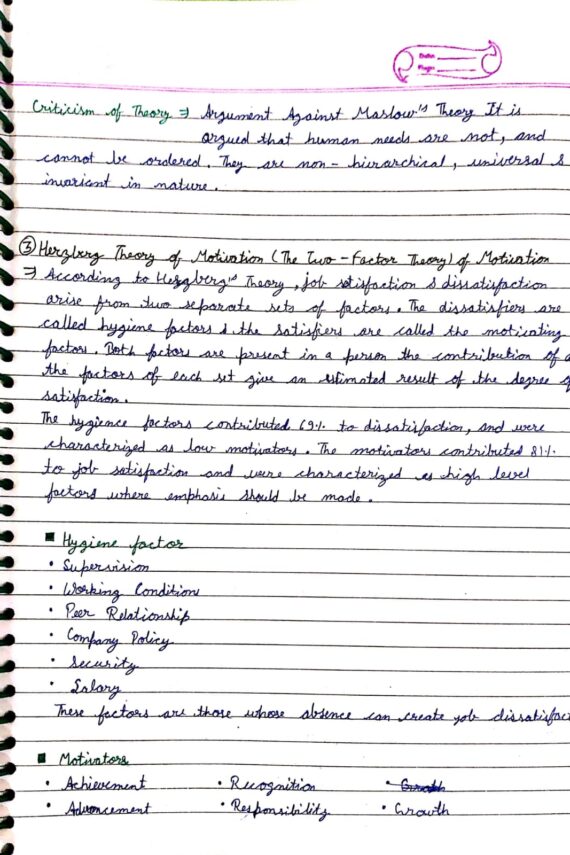 Date:
Page:
Criticism of Theory ⇒ Argument Against Maslow's Theory It is
argued that human needs are not, and
cannot be ordered. They are non-hierarchical, universal &
invariant in nature.
③ Herzberg Theory of Motivation (The Two-Factor Theory) of Motivation
⇒ According to Herzberg's Theory, job satisfaction & dissatisfaction
arise from two separate sets of factors. The dissatisfiers are
called hygiene factors & the satisfiers are called the motivating
factors. Both factors are present in a person the contribution of
the factors of each set give an estimated result of the degree of
satisfaction.
The hygience factors contributed 69% to dissatisfaction, and were
characterized as low motivators. The motivators contributed 81%
to job satisfaction and were characterized as high level
factors where emphasis should be made.
■ Hygiene factor
• Supervision
• Working Condition
• Peer Relationship
• Company Policy
• Security
• Salary
These factors are those whose absence can create job
■ Motivators
• Achievement • Recognition •
• Advancement • Responsibility • Growth